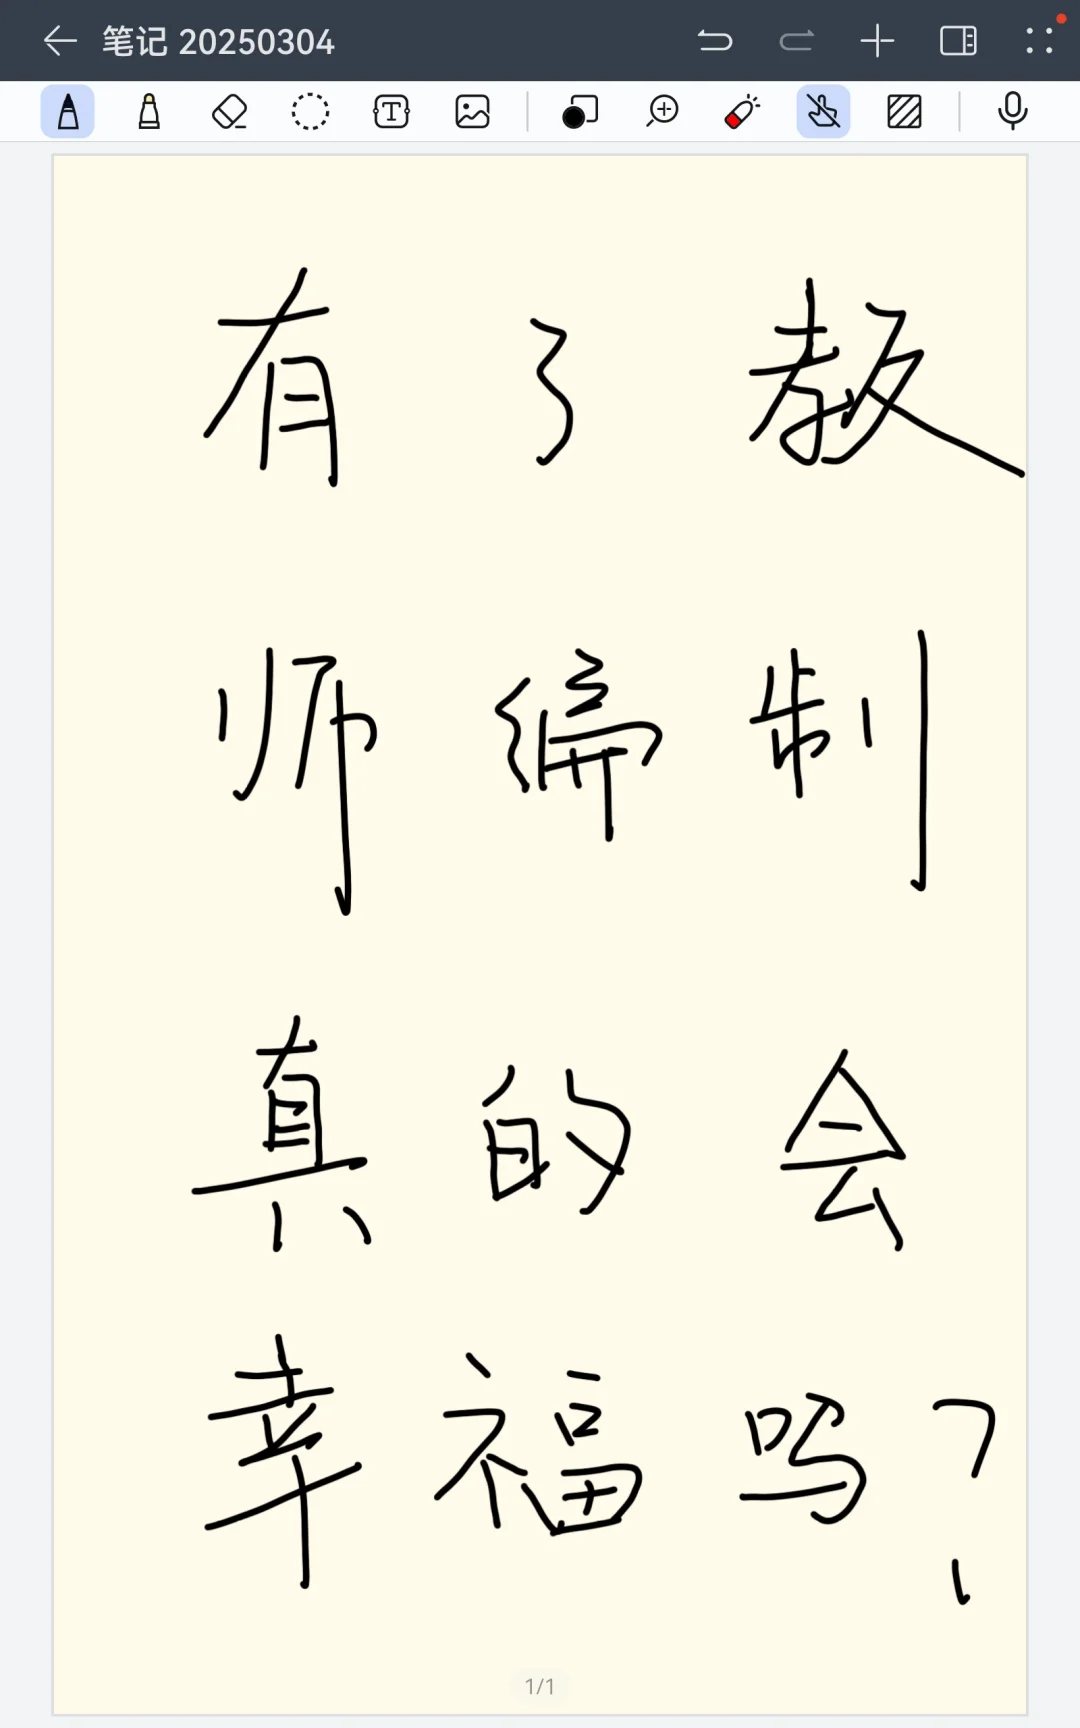 笔记 20250304
有了教
师编制
真的会
幸福吗?
1/1